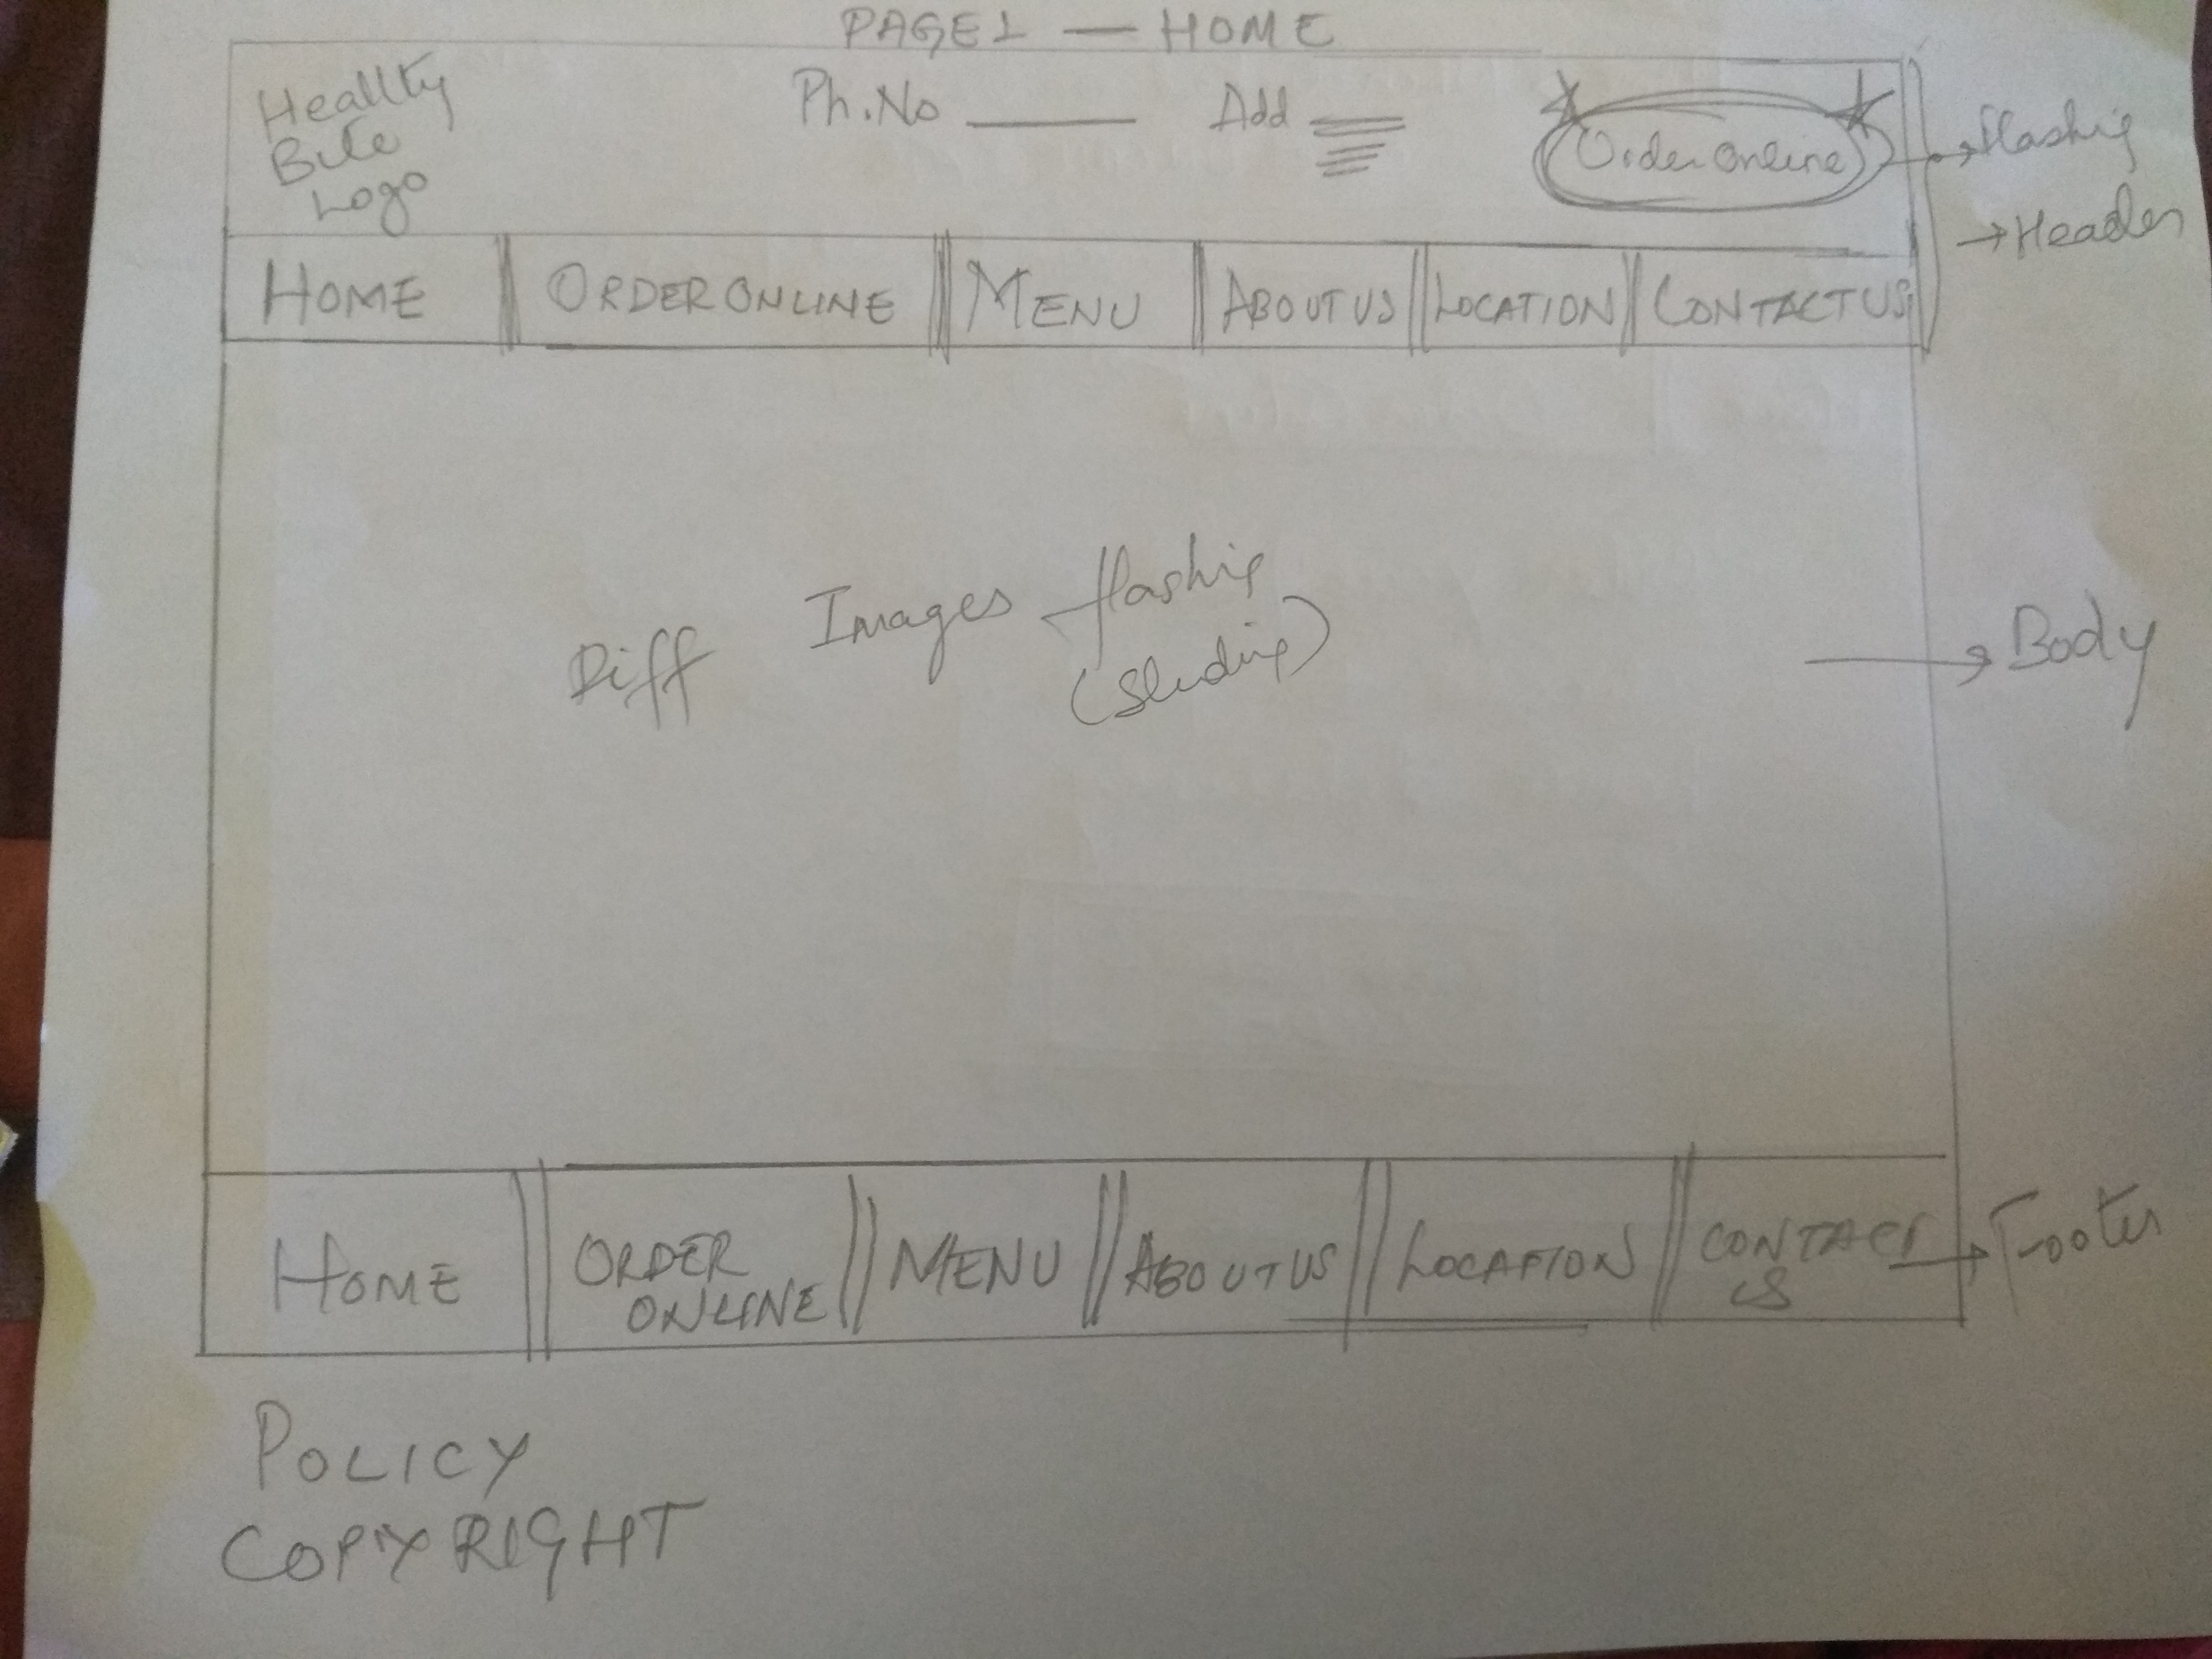 PAGE1 — HOME
Healthy
Bite
Logo
Ph.No Add
Order Online
→ flashing
→ Header
HOME ORDER ONLINE MENU ABOUT US LOCATION CONTACT US
Diff Images flashing
(Sliding)
→ Body
HOME ORDER ONLINE MENU ABOUT US LOCATION CONTACT US
→ Footer
POLICY
COPYRIGHT